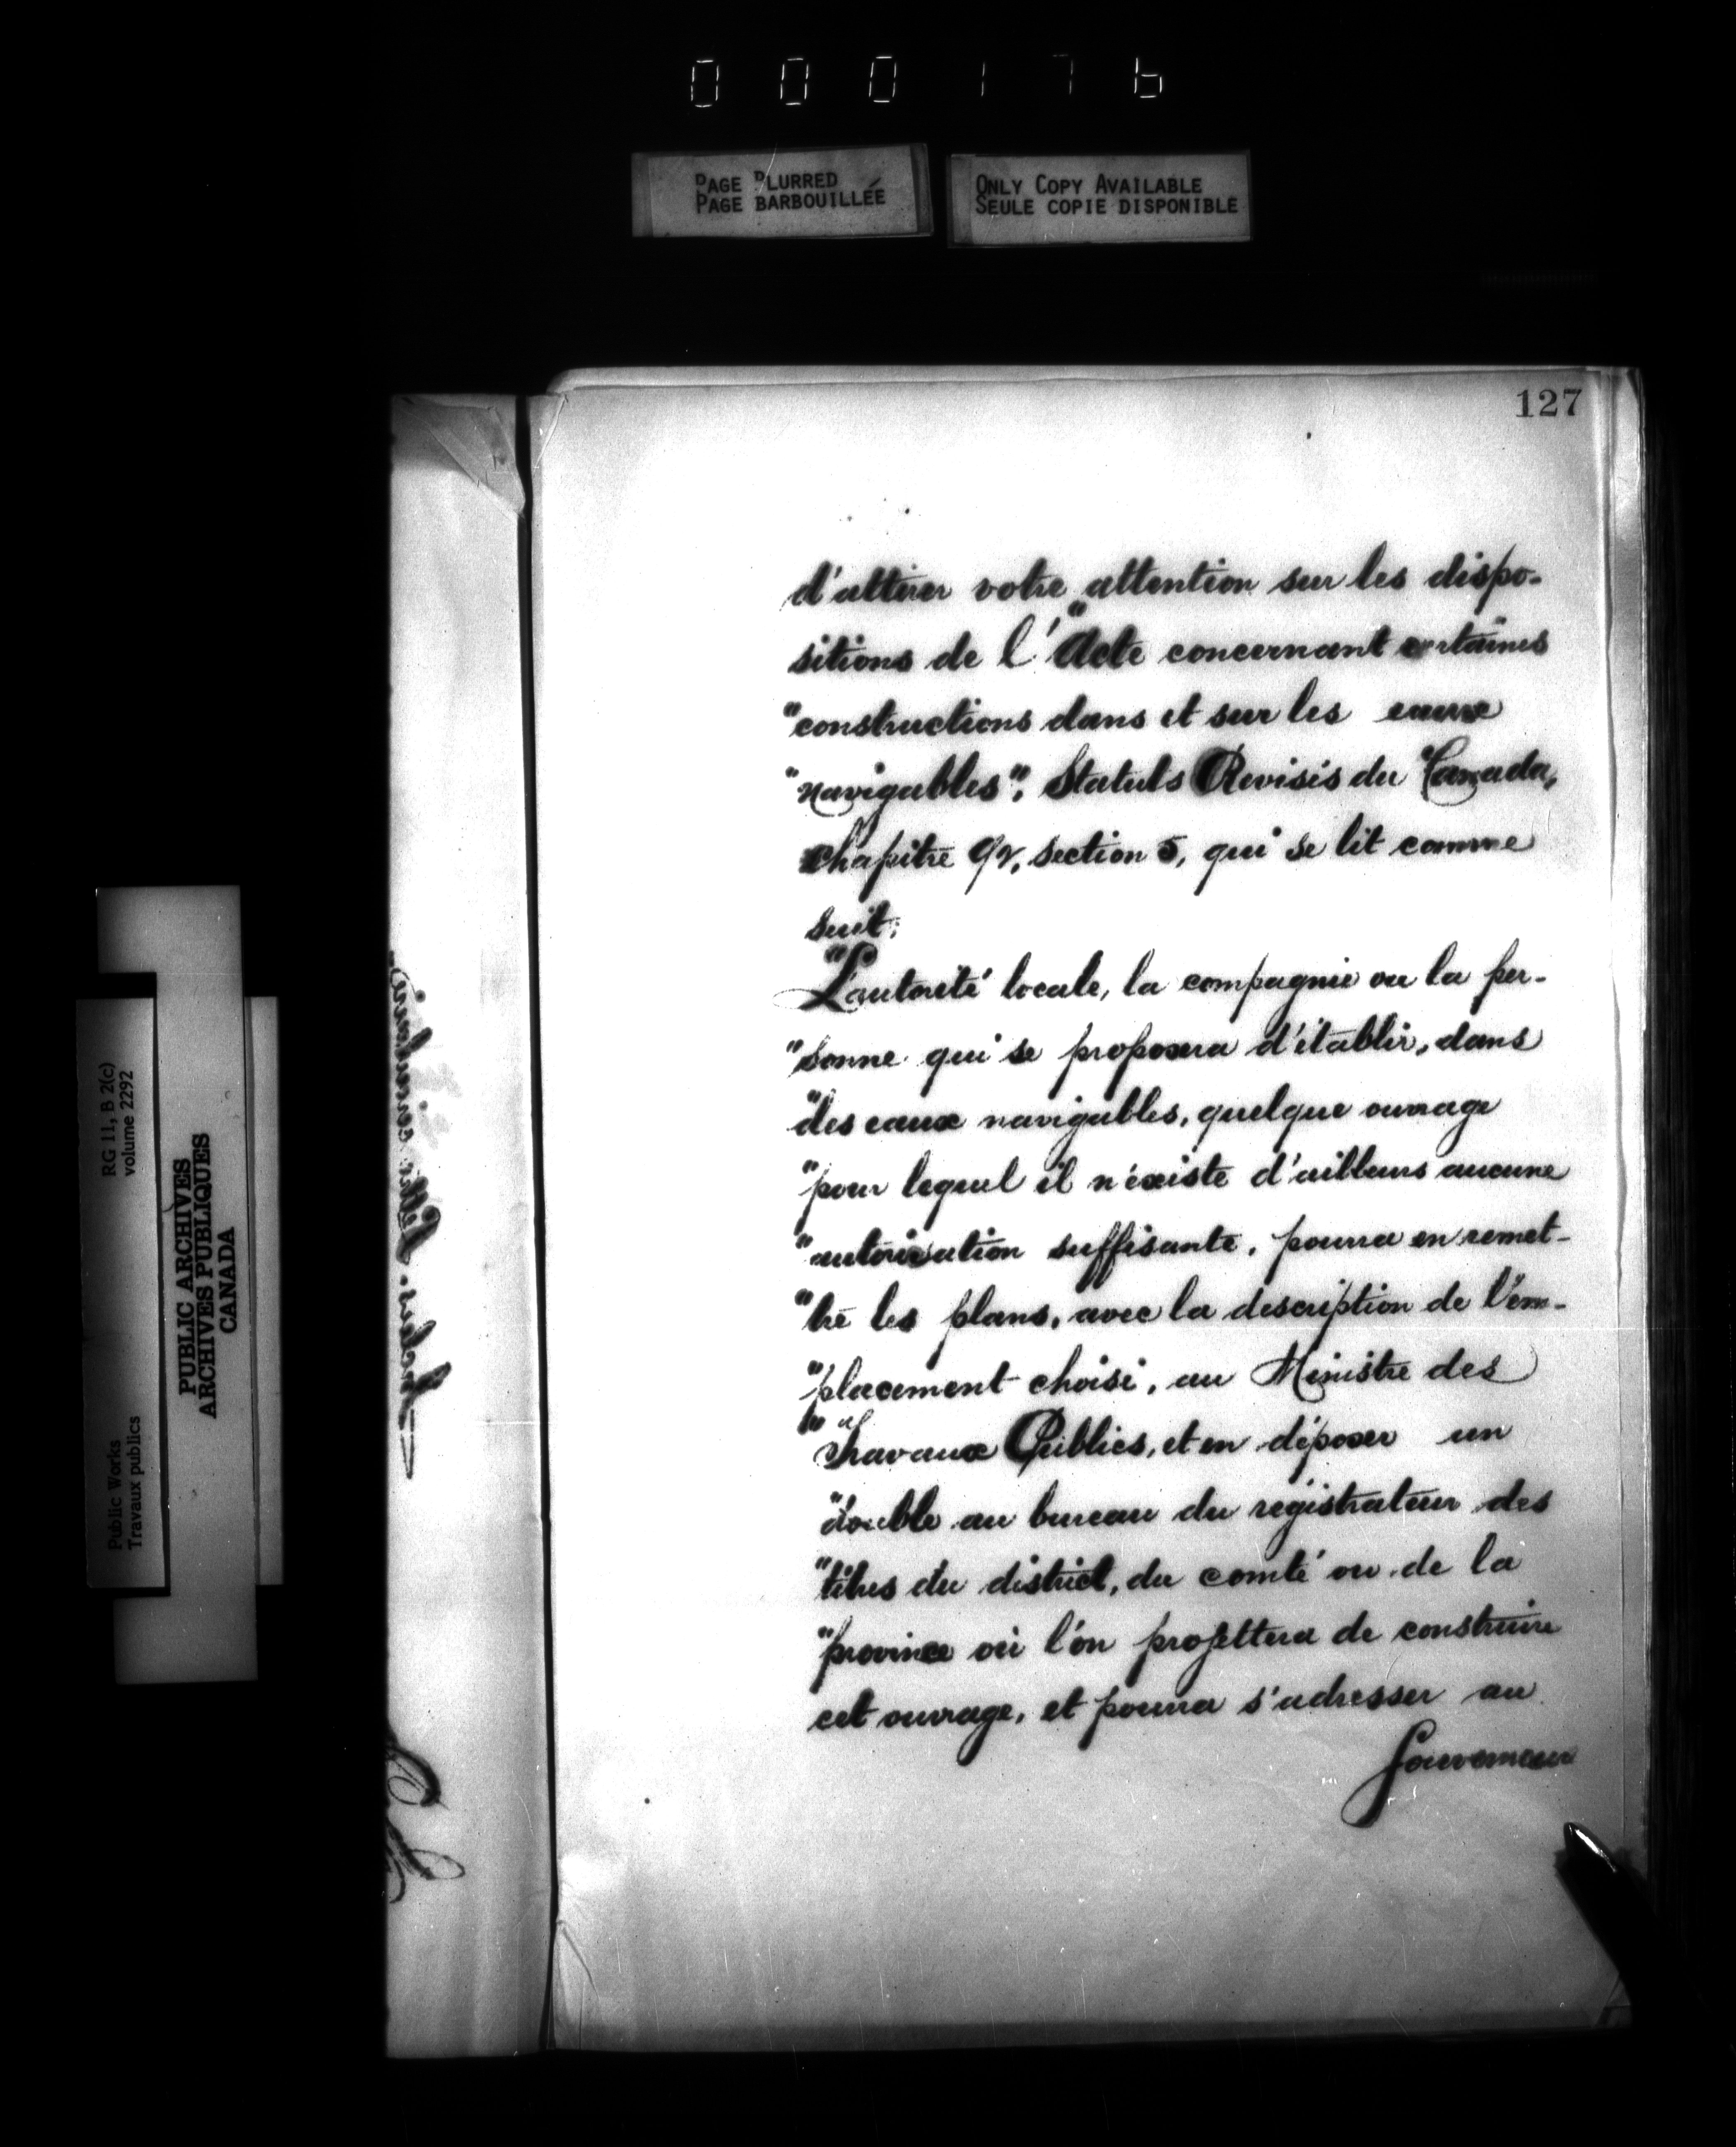 000176
PAGE BLURRED
PAGE BARBOUILLÉE
ONLY COPY AVAILABLE
SEULE COPIE DISPONIBLE
127
d'attirer votre attention sur les dispo-
sitions de l'"Acte concernant certaines
"constructions dans et sur les eaux
"navigables", Statuts Revisés du Canada,
chapitre 92, section 5, qui se lit comme
suit:
"L'autorité locale, la compagnie ou la per-
"sonne qui se proposera d'établir, dans
"des eaux navigables, quelque ouvrage
"pour lequel il n'existe d'ailleurs aucune
"autorisation suffisante, pourra en remet-
"tre les plans, avec la description de l'em-
"placement choisi, au Ministre des
"Travaux Publics, et en déposer un
"double au bureau du registrateur des
"titres du district, du comté ou de la
"province où l'on projettera de construire
cet ouvrage, et pourra s'adresser au
Gouverneur
RG 11, B 2(c)
volume 2292
PUBLIC ARCHIVES
ARCHIVES PUBLIQUES
CANADA
Public Works
Travaux publics